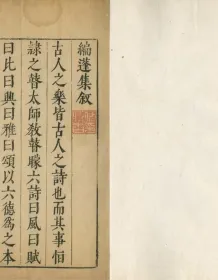 編蓬集叙
古人之樂皆古人之詩也而其事怕
隷之瞽太師敎瞽矇六詩曰風曰賦
曰比曰興曰雅曰頌以六德爲之本